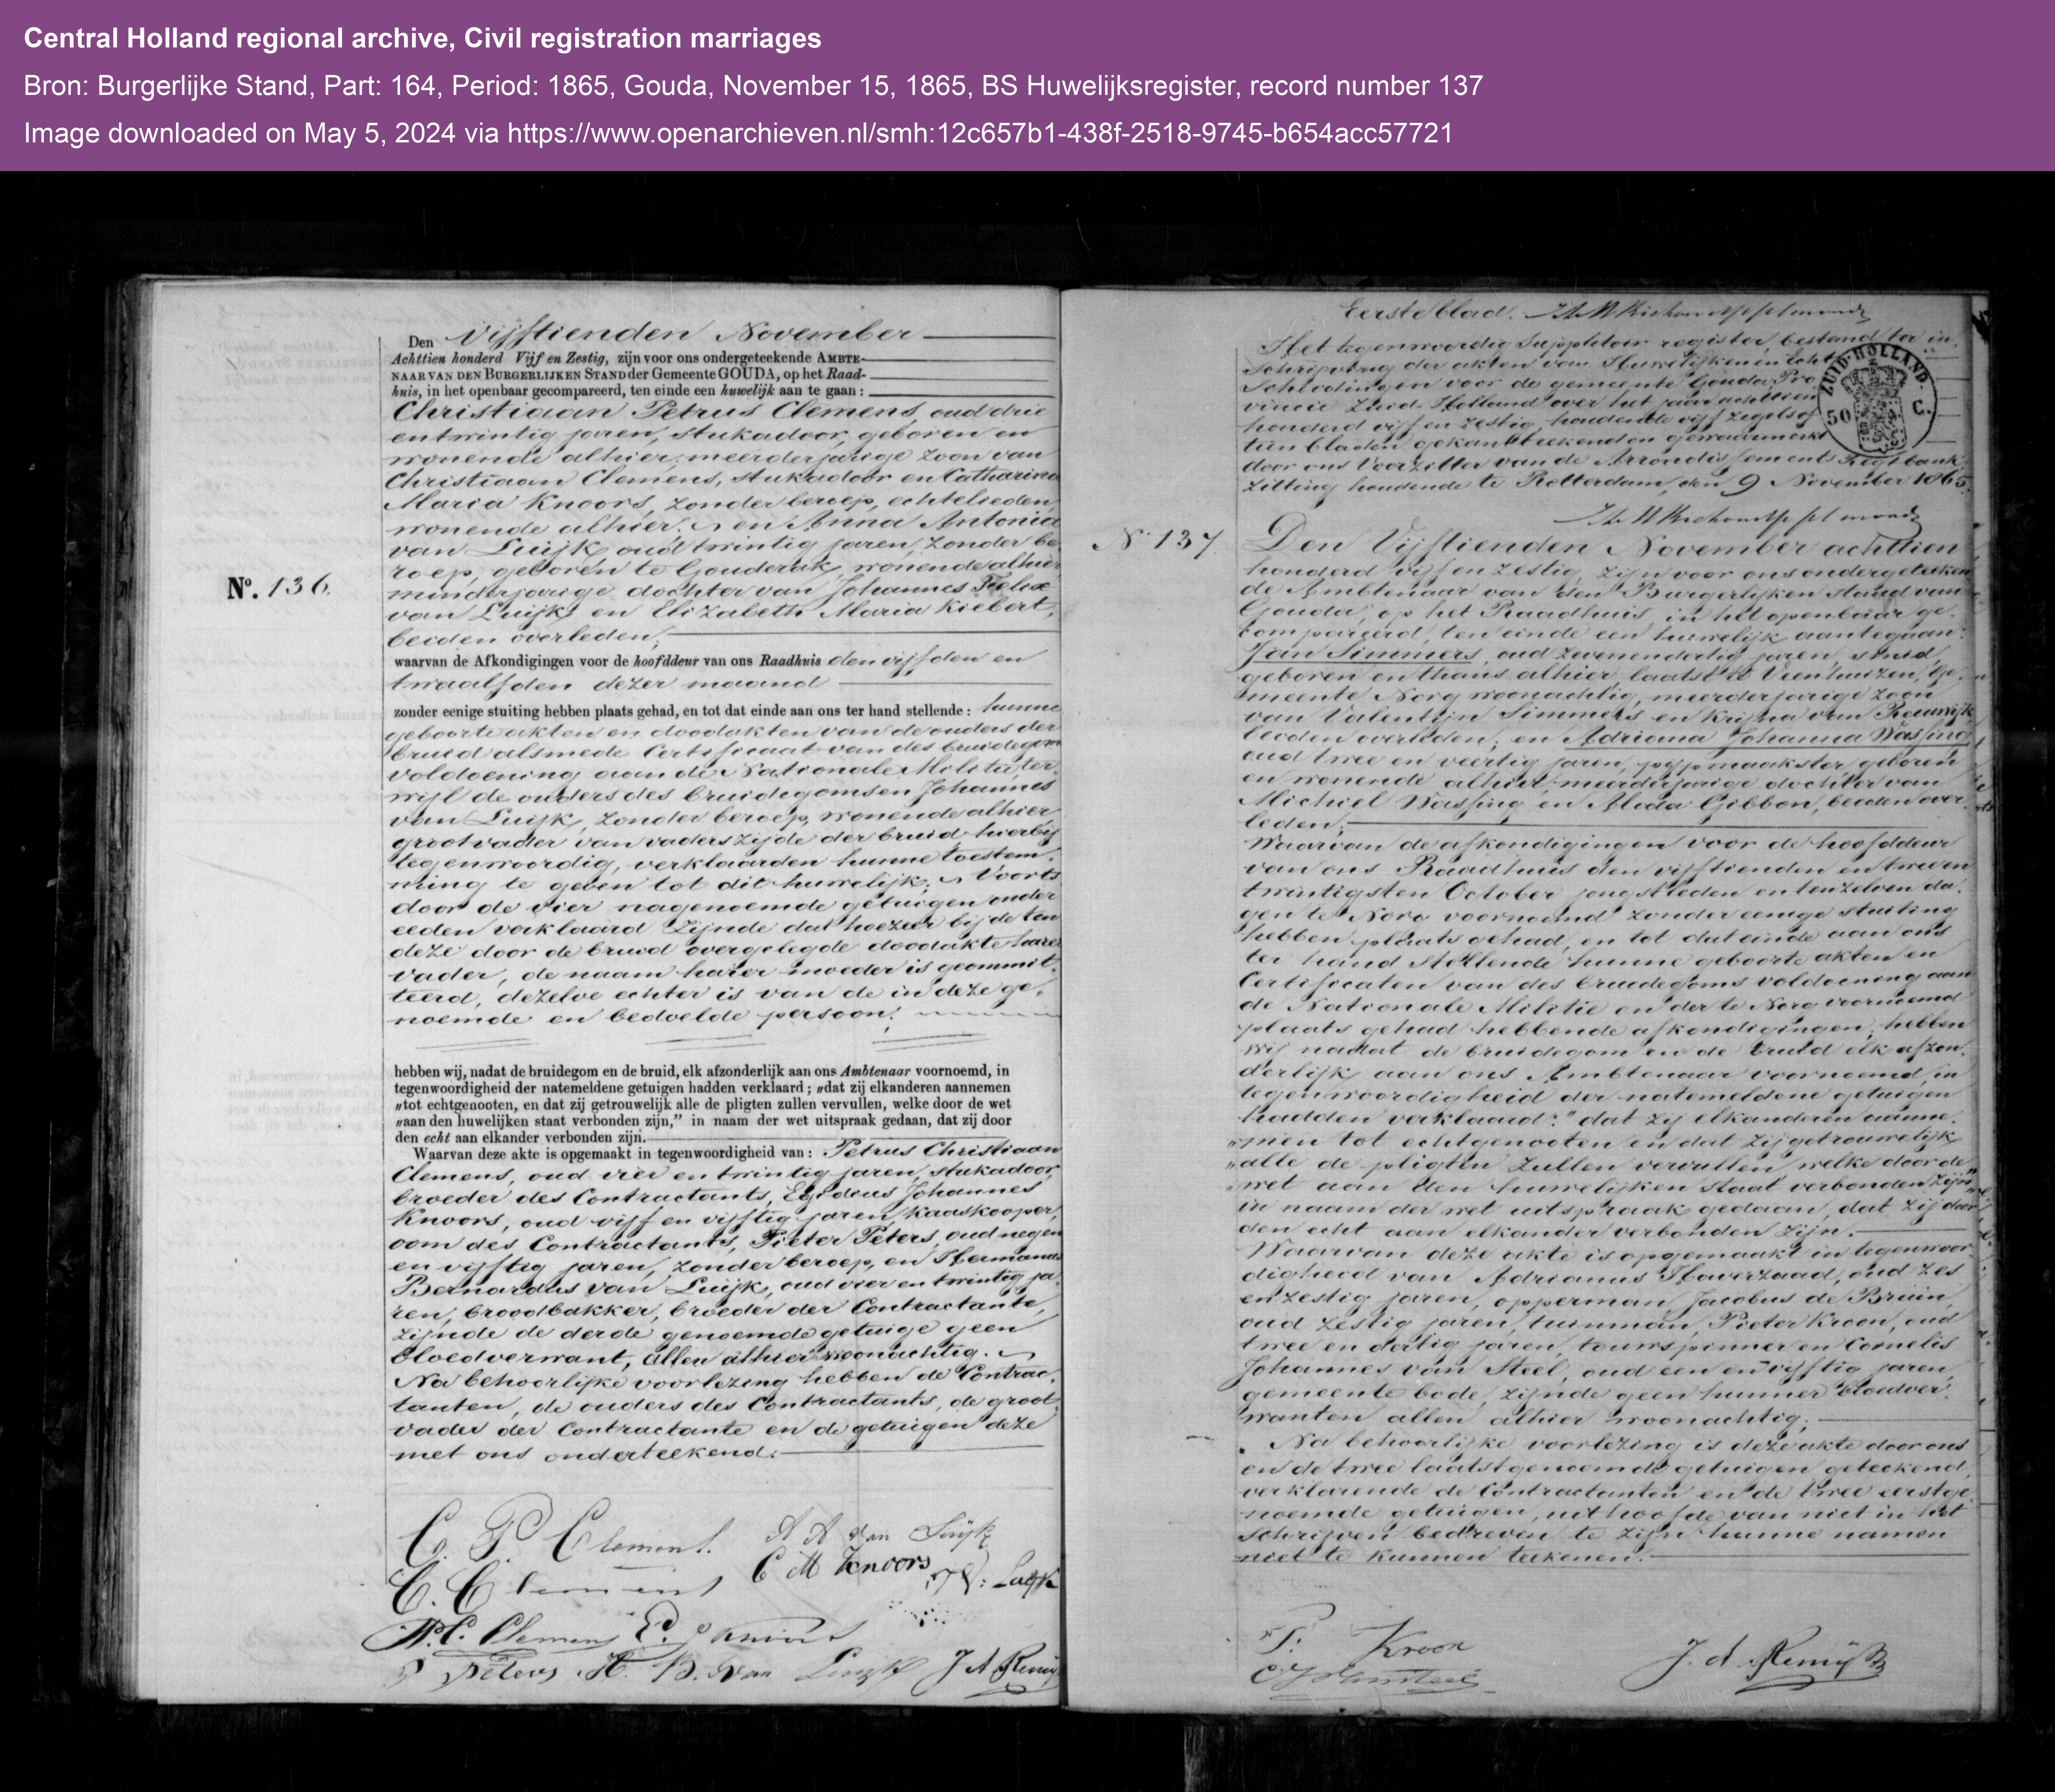 Central Holland regional archive, Civil registration marriages
Bron: Burgerlijke Stand, Part: 164, Period: 1865, Gouda, November 15, 1865, BS Huwelijksregister, record number 137
Image downloaded on May 5, 2024 via https://www.openarchieven.nl/smh:12c657b1-438f-2518-9745-b654acc57721
Den vijftienden November
Achttien honderd Vijf en Zestig, zijn voor ons ondergeteekende AMBTE-
NAAR VAN DEN BURGERLIJKEN STAND der Gemeente GOUDA, op het Raad-
huis, in het openbaar gecompareerd, ten einde een huwelijk aan te gaan:
Christiaan Petrus Clemens, oud drie
en twintig jaren, stukadoor, geboren en
wonende alhier, meerderjarige zoon van
Christiaan Clemens, stukadoor en Catharina
Maria Knoors, zonder beroep, echtelieden,
wonende alhier; en Anna Antonia
van Luijk, oud twintig jaren, zonder be-
roep, geboren te Gouderak, wonende alhier
minderjarige dochter van Johannes Felix
No. 136.
van Luijk en Elizabeth Maria Kiebert,
beiden overleden;
waarvan de Afkondigingen voor de hoofddeur van ons Raadhuis den vijfden en
twaalfden dezer maand
zonder eenige stuiting hebben plaats gehad, en tot dat einde aan ons ter hand stellende: hunne
geboorte akten en doodakten van de ouders der
bruid alsmede Certificaat van des bruidegoms
voldoening aan de Nationale Militie, ter-
wijl de ouders des bruidegoms en Johannes
van Luijk, zonder beroep, wonende alhier,
grootvader van vaders zijde der bruid hierbij
tegenwoordig, verklaarden hunne toestem-
ming te geven tot dit huwelijk; Voorts
door de vier nagenoemde getuigen onder
eeden verklaard zijnde dat hoezeer bij de ten
deze door de bruid overgelegde doodakte harer
vader, de naam harer moeder is geommit-
teerd, dezelve echter is van de in deze ge-
noemde en bedoelde persoon;
hebben wij, nadat de bruidegom en de bruid, elk afzonderlijk aan ons Ambtenaar voornoemd, in
tegenwoordigheid der natemeldene getuigen hadden verklaard; „dat zij elkanderen aannemen
„tot echtgenooten, en dat zij getrouwelijk alle de pligten zullen vervullen, welke door de wet
„aan den huwelijken staat verbonden zijn,” in naam der wet uitspraak gedaan, dat zij door
den echt aan elkander verbonden zijn.
Waarvan deze akte is opgemaakt in tegenwoordigheid van: Petrus Christiaan
Clemens, oud vier en twintig jaren, stukadoor,
broeder des Contractants, Egidius Johannes
Knoors, oud vijf en vijftig jaren, kaaskooper,
oom des Contractants, Pieter Peters, oud negen
en vijftig jaren, zonder beroep, en Hermanus
Bernardus van Luijk, oud vier en twintig ja-
ren, broodbakker, broeder der Contractante,
zijnde de derde genoemde getuige geen
bloedverwant, allen alhier woonachtig.
Na behoorlijke voorlezing hebben de Contrac-
tanten, de ouders des Contractants, de groot-
vader der Contractante en de getuigen deze
met ons onderteekend.
C. P. Clemens. A A van Luijk
C. Clemens C M Knoors
P. C. Clemens E. J Knoors
P Peters H. B. van Luijk J A Remij
Eerste blad.
Het tegenwoordig Suppletoir register, bestemd ter in-
schrijving der akten van Huwelijken en Echt-
scheidingen voor de gemeente Gouda, Pro-
vincie Zuid-Holland over het jaar achttien
honderd vijf en zestig, houdende vijf zegels of
tien bladen, gekantteekend en gewaarmerkt
door ons Voorzitter van de Arrondissements Regtbank
zitting houdende te Rotterdam, den 9 November 1865.
ZUID-HOLLAND.
50 C.
No 137
Den Vijftienden November achttien
honderd vijf en zestig, zijn voor ons ondergeteeken-
de Ambtenaar van den Burgerlijken Stand van
Gouda, op het Raadhuis, in het openbaar ge-
compareerd, ten einde een huwelijk aantegaan:
Jan Simmers, oud zevenendertig jaren, smid,
geboren en thans alhier, laatst te Veenhuizen, Ge-
meente Norg woonachtig, meerderjarige zoon
van Valentijn Simmers en Krijna van Reeuwijk,
beiden overleden; en Adriana Johanna Wassing
oud twee en veertig jaren, pijpmaakster, geboren
en wonende alhier, meerderjarige dochter van
Michiel Wassing en Alida Gibbon, beiden over-
leden;
Waarvan de afkondigingen voor de hoofddeur
van ons Raadhuis den vijftienden en twee en
twintigsten October jongstleden en ten zelven da-
gen te Norg voornoemd zonder eenige stuiting
hebben plaats gehad, en tot dat einde aan ons
ter hand stellende hunne geboorte akten en
Certificaten van des bruidegoms voldoening aan
de Nationale Militie en der te Norg voornoemd
plaats gehad hebbende afkondigingen; hebben
wij nadat de bruidegom en de bruid elk afzon-
derlijk aan ons Ambtenaar voornoemd, in
tegenwoordigheid der natemeldene getuigen
hadden verklaard: "dat zij elkanderen aanne-
„men tot echtgenooten en dat zij getrouwelijk
„alle de pligten zullen vervullen, welke door de
„wet aan den huwelijken staat verbonden zijn"
in naam der wet uitspraak gedaan, dat zij door
den echt aan elkander verbonden zijn.
Waarvan deze akte is opgemaakt in tegenwoor-
digheid van Adrianus Haverzaad, oud zes
en zestig jaren, opperman, Jacobus de Bruin,
oud zestig jaren, tuinman, Pieter Kroon, oud
twee en dertig jaren, touwspinner en Cornelis
Johannes van Steel, oud een en vijftig jaren,
gemeente bode, zijnde geen hunner bloedver-
wanten allen alhier woonachtig;
Na behoorlijke voorlezing is deze akte door ons
en de twee laatstgenoemde getuigen geteekend,
verklarende de Contractanten en de twee eerstge-
noemde getuigen, uit hoofde van niet in het
schrijven bedreven te zijn hunne namen
niet te kunnen teekenen.
P. Kroon
J. A. Remij